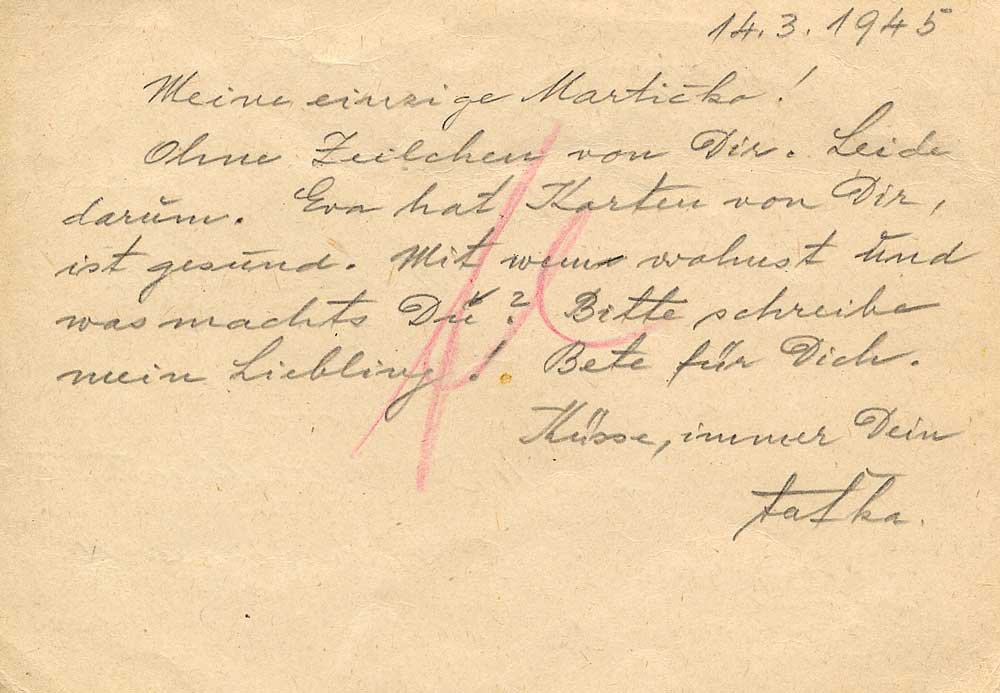 14.3.1945
Meine einzige Martička!
Ohne Zeilchen von Dir. Leide
darum. Eva hat Karten von Dir,
ist gesund. Mit wem wohnst und
was machts Du? Bitte schreibe
mein Liebling! Bete für Dich.
Küsse, immer Dein
taťka.